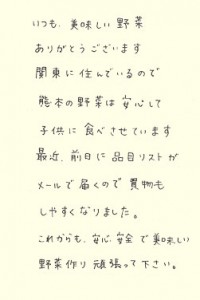 いつも、美味しい野菜
ありがとうございます
関東に住んでいるので
熊本の野菜は安心して
子供に食べさせています
最近、前日に品目リストが
メールで届くので買物も
しやすくなりました。
これからも、安心、安全で美味しい
野菜作り頑張って下さい。